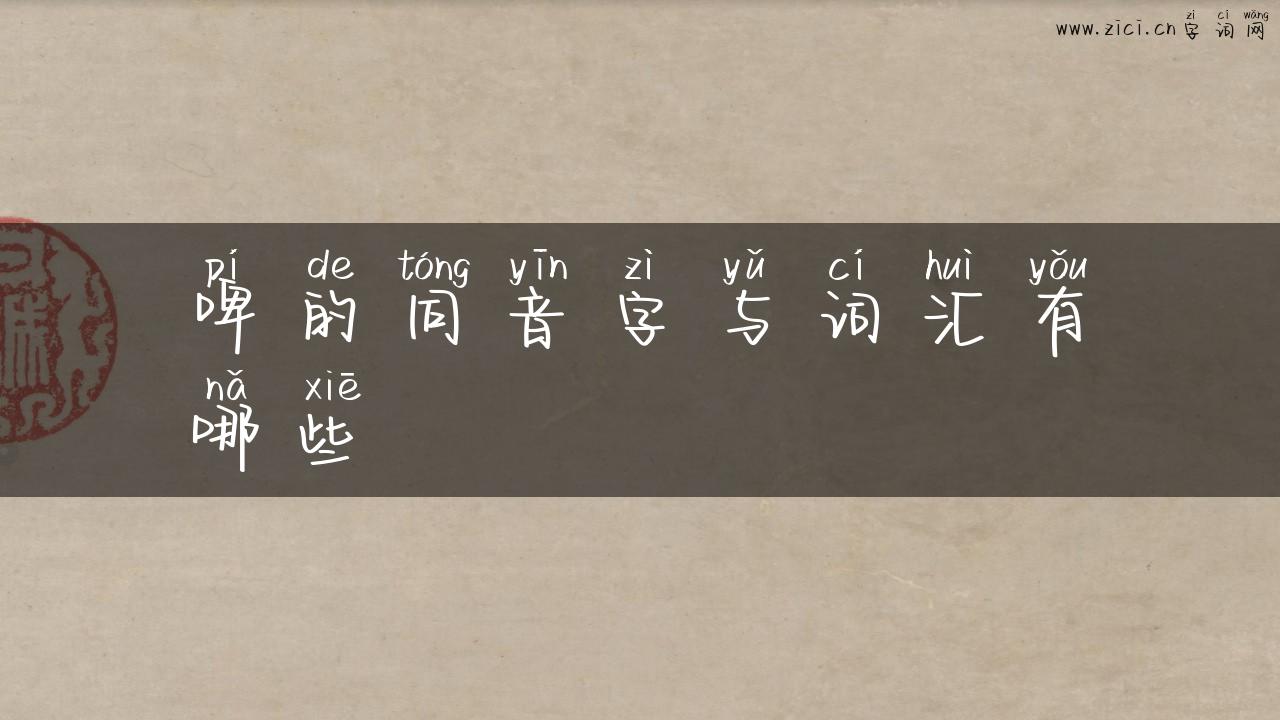 zì cí wǎng
www.zici.cn 字词网
pí de tóng yīn zì yǔ cí huì yǒu
啤的同音字与词汇有
nǎ xiē
哪些